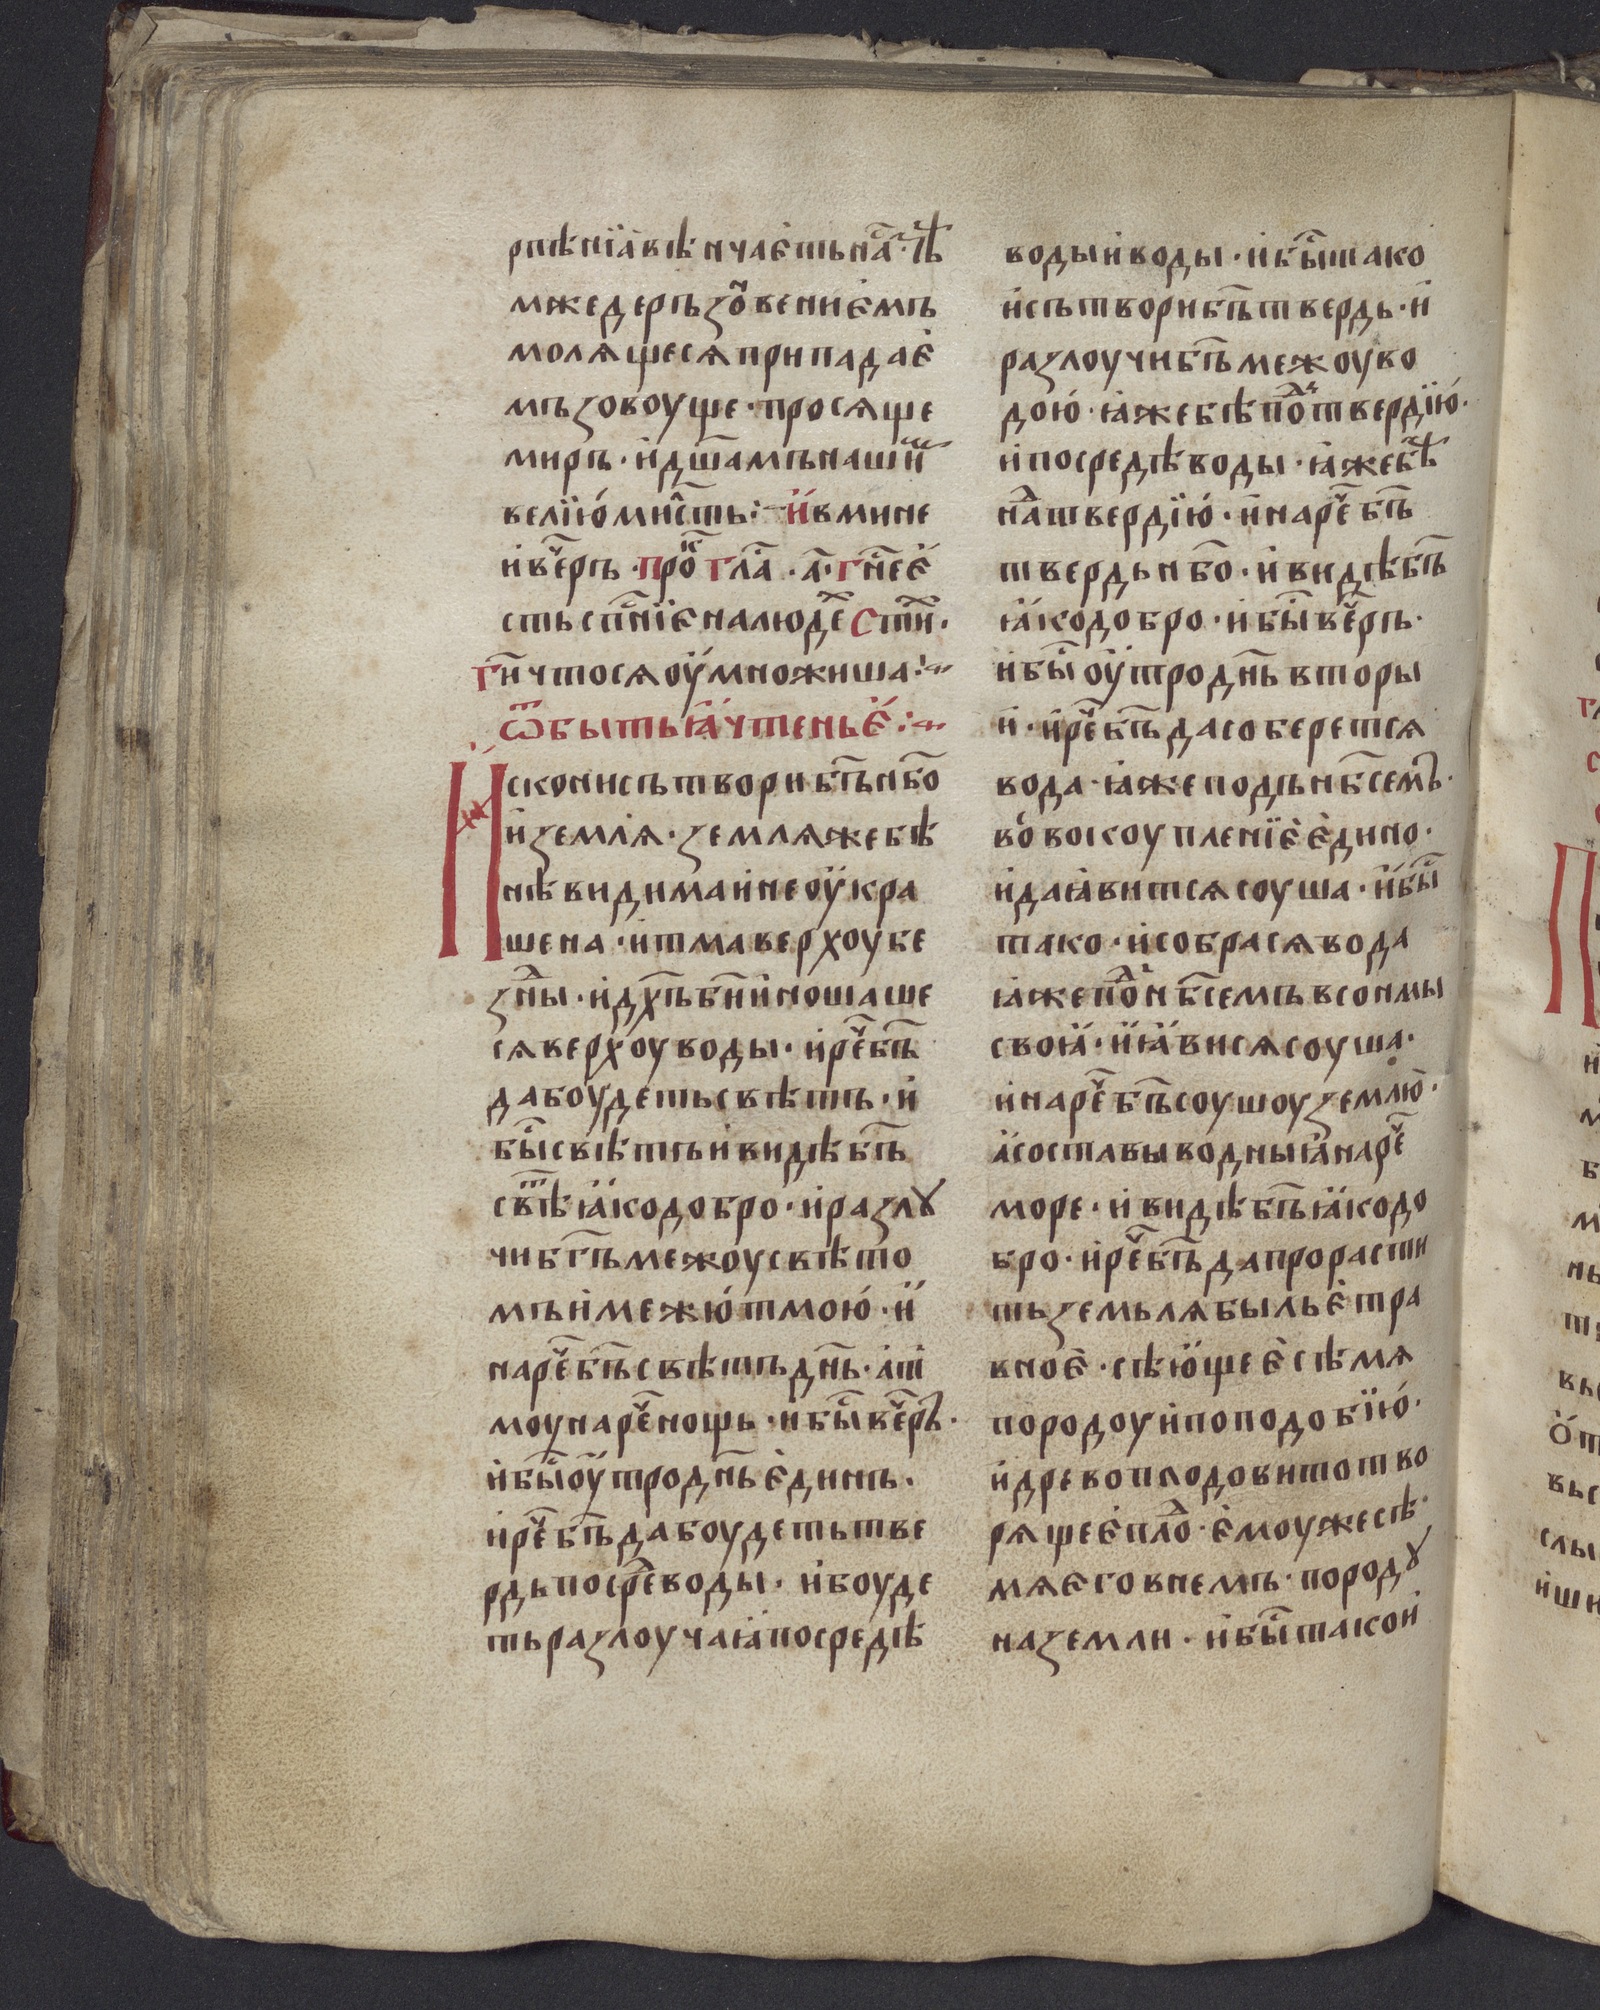 рпѣнїꙗ вѣнчаѥть на҃ · тѣ
мже дерьзо҃вениѥмъ
молѧщесѧ припадаѥ
мъ зовоуще · просѧще
миръ · и дш҃амъ наши҃
велїю мл҃сть : · и в мине
и ве҃ръ · про҃ гла҃ · а҃ · гн҃е ѥ
сть сп҃нїѥ на люде҃ сти҃ ·
гн҃ чтосѧ оумножиша :~
ѿ бытьꙗ чтеньѥ :~
Искони сътвори бг҃ъ нб҃о
и землѧ · землѧ же бѣ
нѣвидима и не оукра
шена · и тма верхоу бе
зн҃ы · и дх҃ъ бж҃ии ношаше
сѧ верхоу воды · и ре҃ бг҃ъ
да боудеть свѣтъ · и
бы҃ свѣтъ и видѣ бг҃ъ
свѣ҃ ꙗко добро · и разлꙋ
чи бг҃ъ межоу свѣто
мъ и межю тмою · и
наре҃ бг҃ъ свѣтъ дн҃ь · а т
моу наре҃ нощь · и бы҃ ве҃ръ ·
и бы҃ оутро дн҃ь ѥдинъ ·
и ре҃ бг҃ъ да боудеть тве
рдь посре҃ воды · и боуде
ть разлоучаꙗ посредѣ
воды и воды · и бы҃ тако
и сътвори бг҃ъ твердь · и
разлоучи бг҃ъ межоу во
дою · ꙗже бѣ по҃ твердїю ·
и посредѣ воды · ꙗже бѣ
на҃ твердїю · и наре҃ бг҃ъ
твердь нб҃о · и видѣ бг҃ъ
ꙗко добро · и бы҃ ве҃ръ ·
и бы҃ оутро дн҃ь вторы
и · и ре҃ бг҃ъ да соберетсѧ
вода · ꙗже подъ нб҃семъ ·
во воıсоупленїѥ ѥдино ·
и да ꙗвитсѧ соуша · и бы҃
тако · и собрасѧ вода
ꙗже по҃ нб҃семъ в сонмы
своꙗ · и ꙗвисѧ соуша ·
и наре҃ бг҃ъ соушоу землю ·
а составы водныꙗ наре҃
море · и видѣ бг҃ъ ꙗко до
бро · и ре҃ бг҃ъ да прорасти
ть земьлѧ быльѥ тра
вноѥ · сѣющеѥ сѣмѧ
по родоу и по подобїю ·
и древо плодовито тво
рѧщеѥ пло҃ · ѥмоуже сѣ
мѧ ѥго в немъ · по родꙋ
на земли · и бы҃ тако и